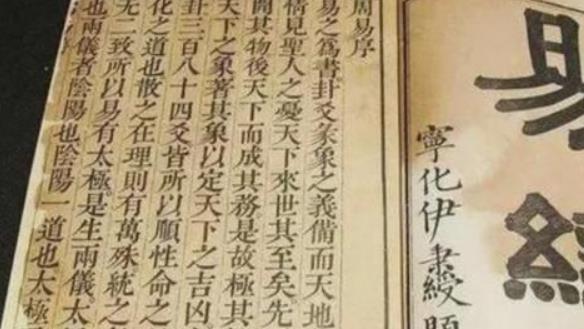 易經
寧化伊秉綬題
周易序
易之爲書卦爻彖象之義備而天地
情見聖人之憂天下來世其至矣。先
開其物後天下而成其務是故極其
天下之象著其象以定天下之吉凶
卦三百八十四爻皆所以順性命之
化之道也散之在理則有萬殊統之
无二致所以易有太極是生兩儀。太
也兩儀者陰陽也陰陽一道也太極